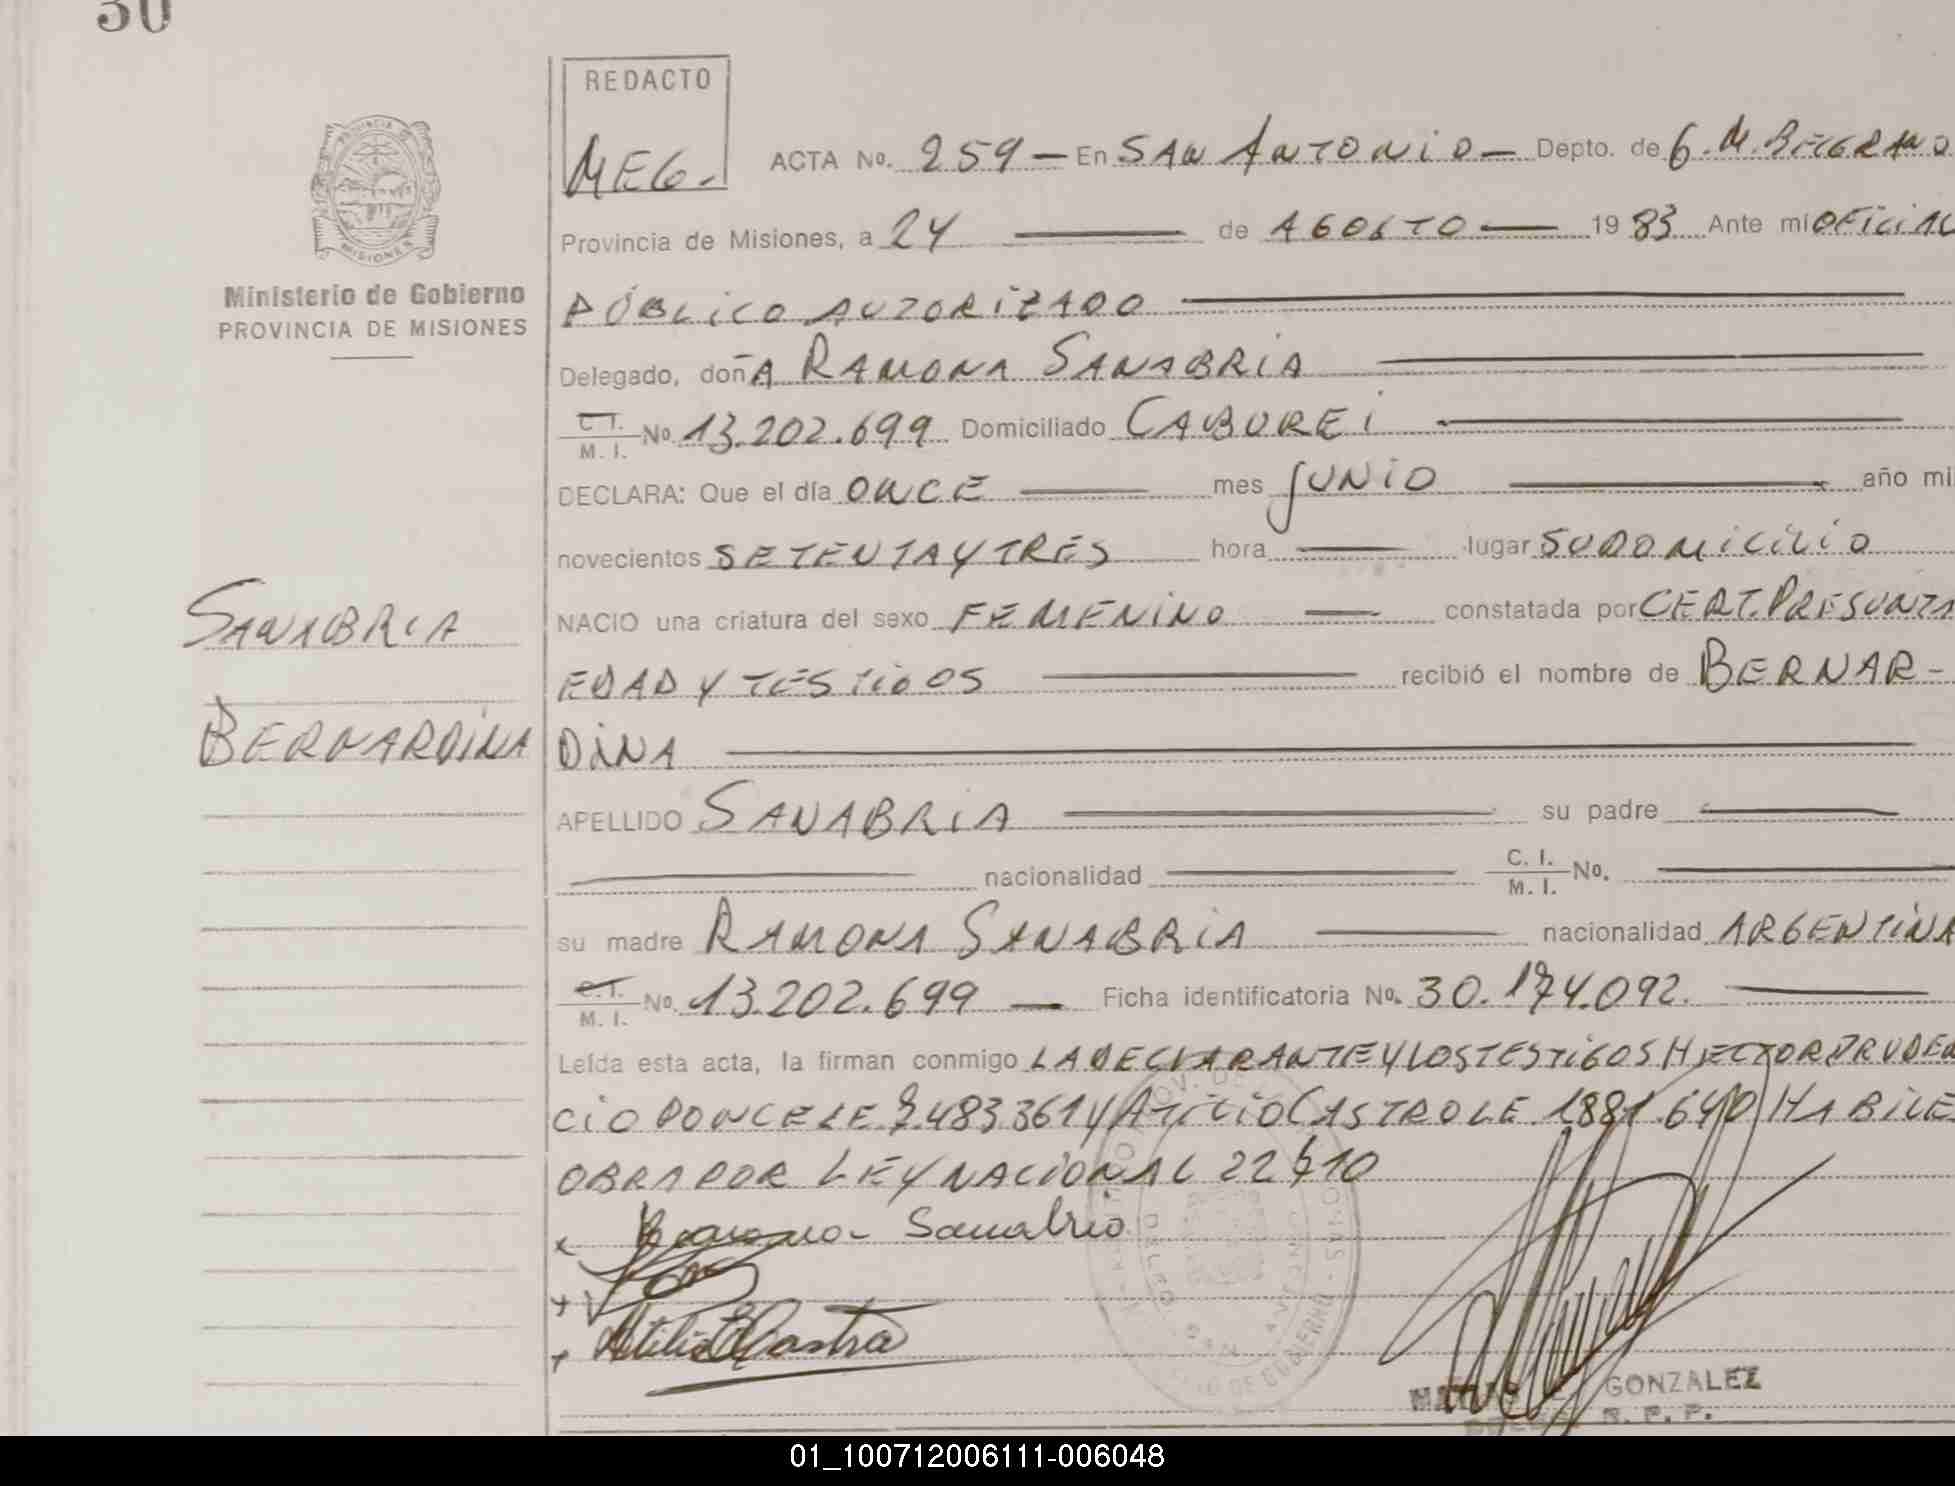 30
REDACTO
MEG.
ACTA No. 259 — En SAN ANTONIO — Depto. de G. M. BELGRANO
Provincia de Misiones, a 24 — de AGOSTO — 1983 Ante mí OFICIAL
PÚBLICO AUTORIZADO —
Ministerio de Gobierno
PROVINCIA DE MISIONES
Delegado, doñA RAMONA SANABRIA —
C.I. M.I. No. 13.202.699 Domiciliado CABUREI —
DECLARA: Que el día ONCE — mes JUNIO — año mil
novecientos SETENTA Y TRES hora — lugar SU DOMICILIO
NACIO una criatura del sexo FEMENINO — constatada por CERT. PRESUNTA
EDAD Y TESTIGOS — recibió el nombre de BERNAR-
DINA —
SANABRIA
BERNARDINA
APELLIDO SANABRIA — su padre —
— nacionalidad — C.I. M.I. No. —
su madre RAMONA SANABRIA — nacionalidad ARGENTINA
C.I. M.I. No. 13.202.699 — Ficha identificatoria No. 30.174.092. —
Leída esta acta, la firman conmigo LA DECLARANTE Y LOS TESTIGOS HECTOR PRUDEN
CIO PONCE LE 7.483361 Y ATILIO CASTRO LE 1881.640 HABILES
OBRADOR LEY NACIONAL 22410
x Ramona Sanabria
+
+ Atilio Castro
GONZALEZ
R. P. P.
01_100712006111-006048